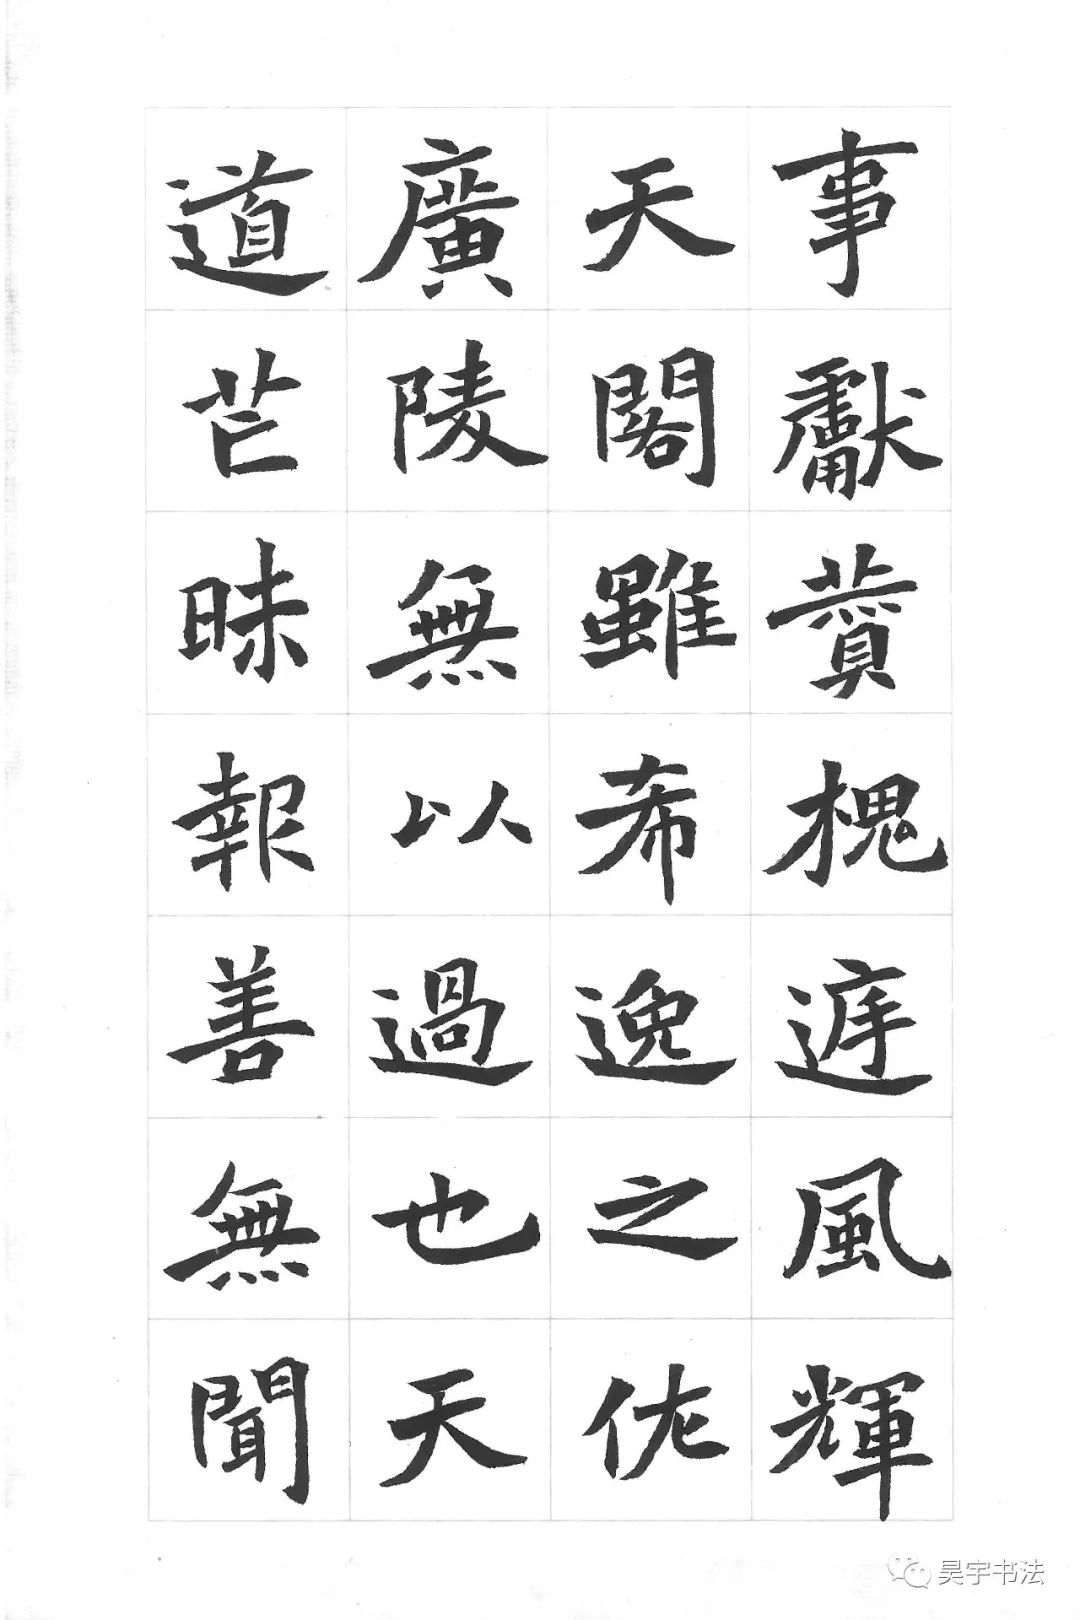 事獻賛槐遲風輝
天閣雖希逸之作
廣陵無以過也天
道芒昧報善無聞
昊宇书法